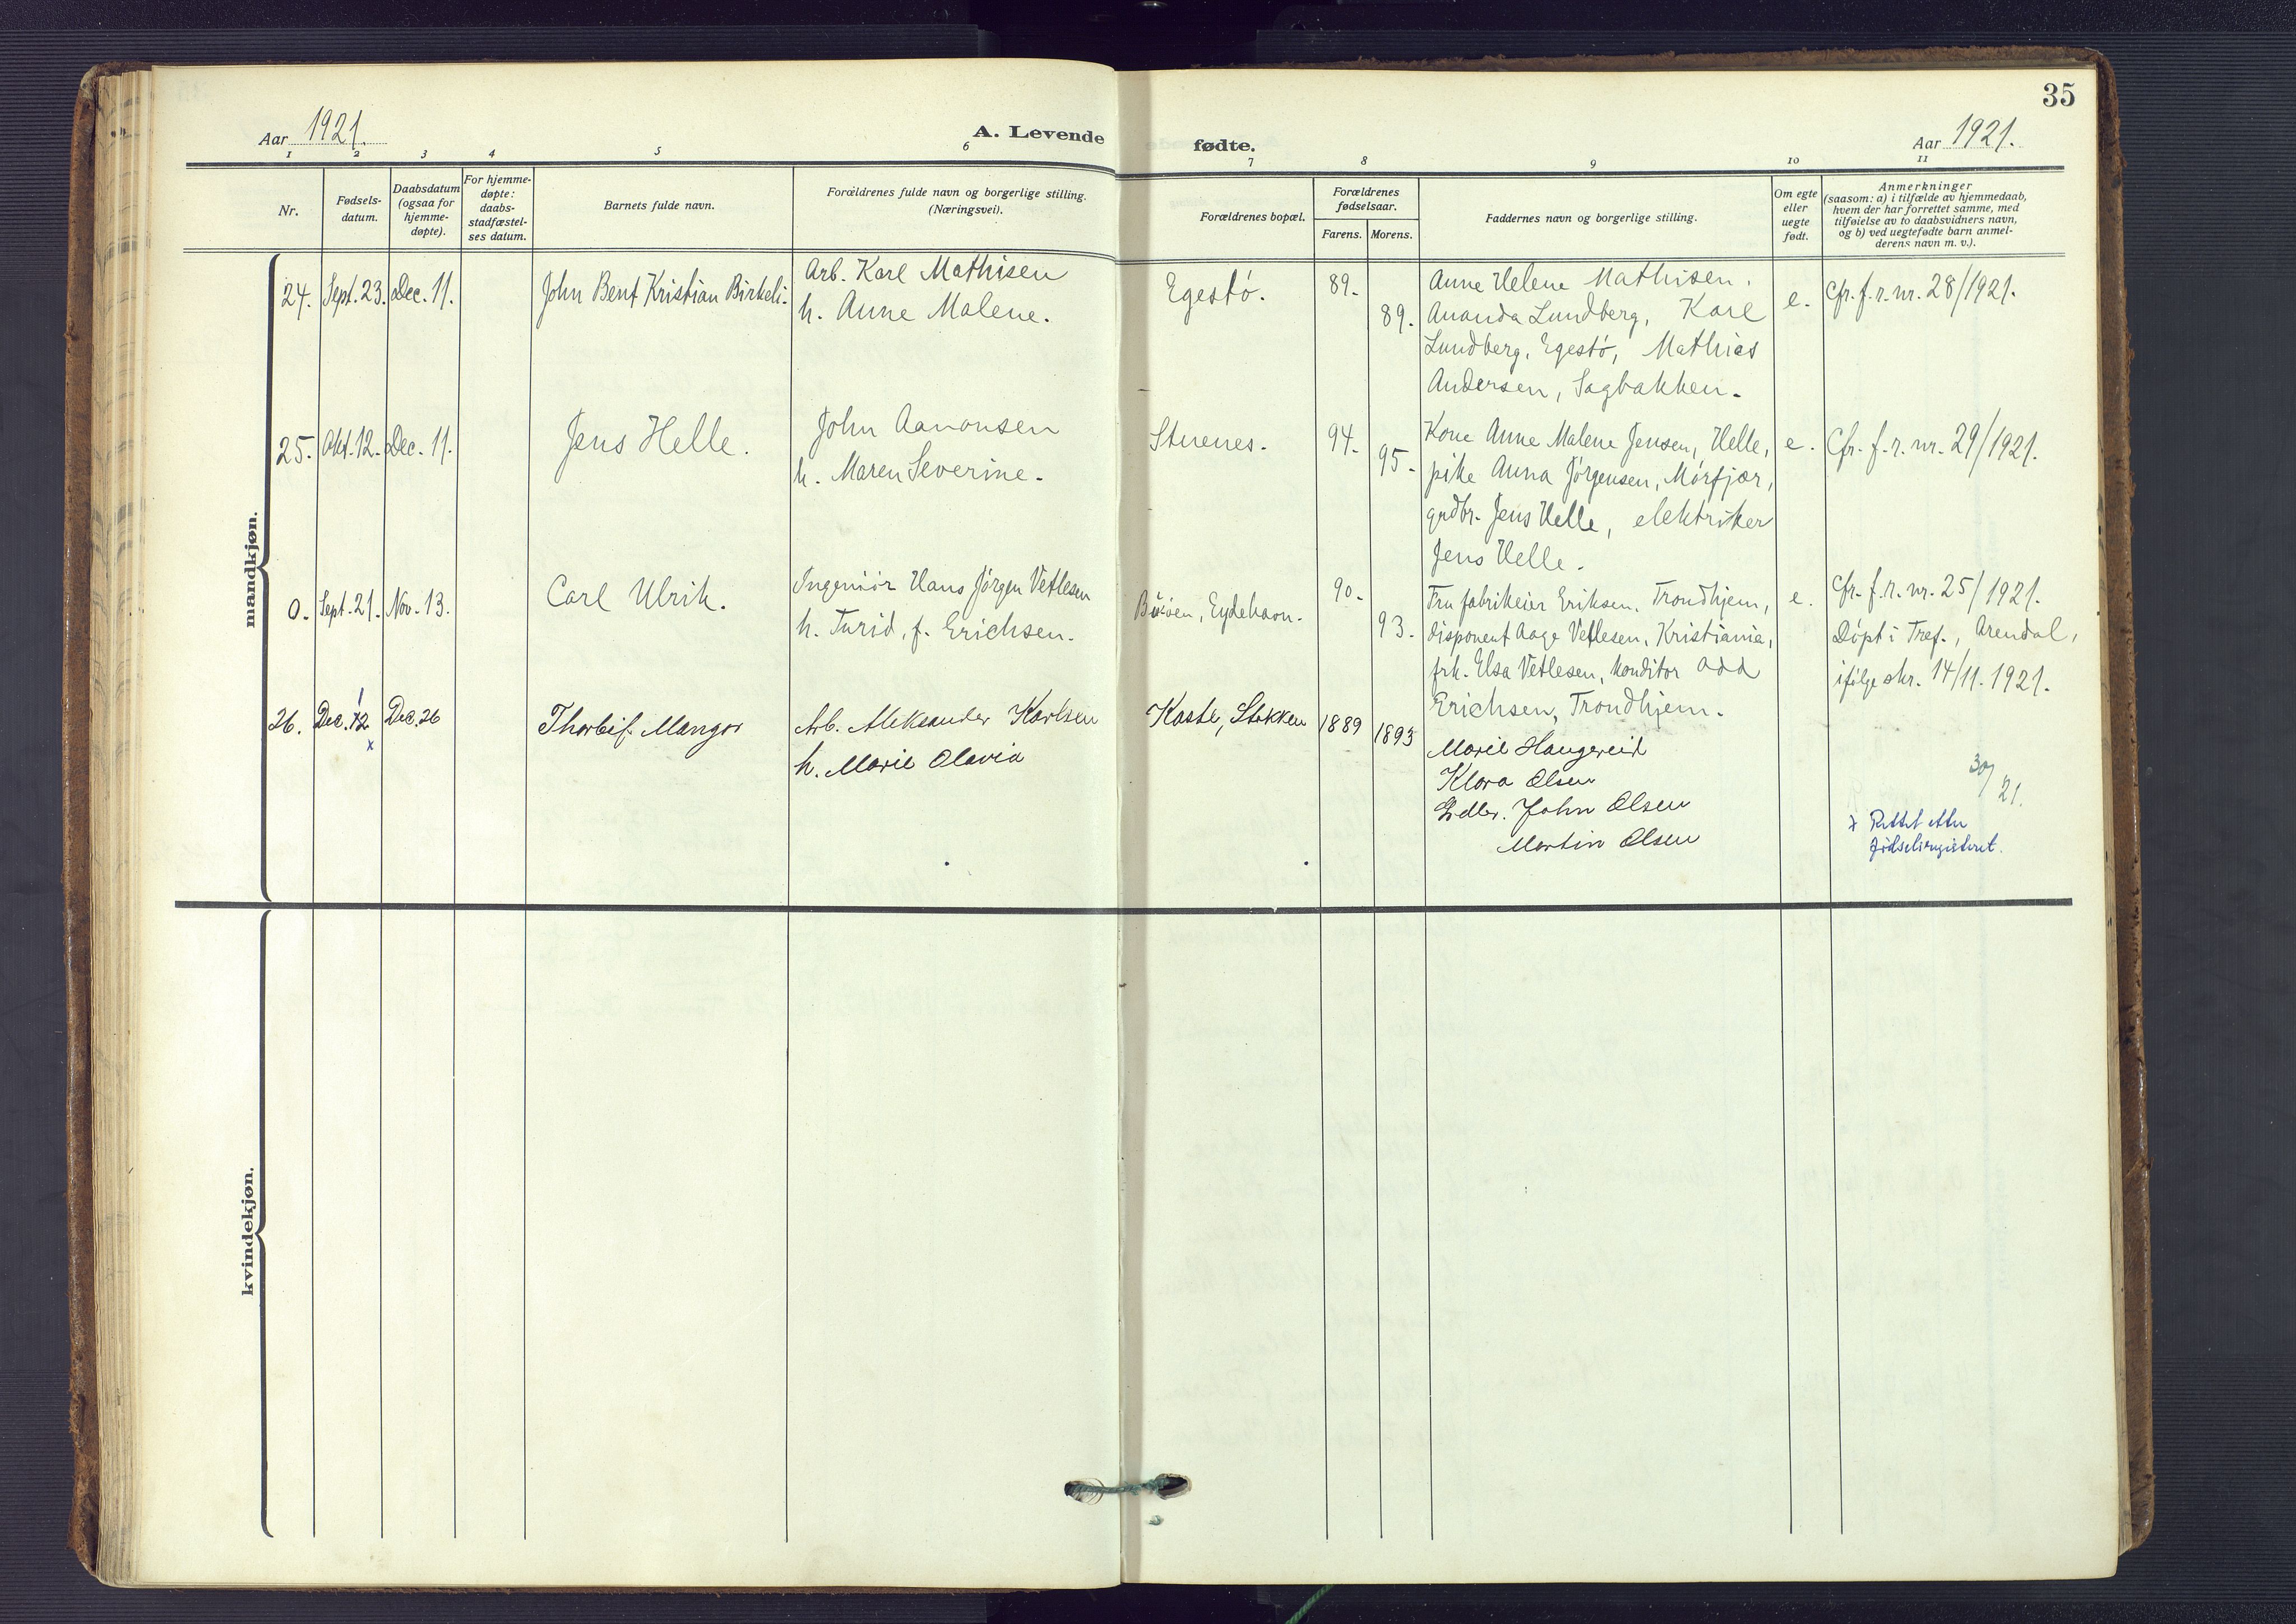 35
Aar 1921.
A. Levende fødte.
Aar 1921.
1 2 3 4 5 6 7 8 9 10 11
Nr.
Fødsels-
datum.
Daabsdatum
(ogsaa for
hjemme-
døpte).
For hjemme-
døpte:
daabs-
stadfæstel-
ses datum.
Barnets fulde navn.
Forældrenes fulde navn og borgerlige stilling.
(Næringsvei).
Forældrenes bopæl.
Forældrenes
fødselsaar.
Farens. Morens.
Faddernes navn og borgerlige stilling.
Om egte
eller
uegte
født.
Anmerkninger
(saasom: a) i tilfælde av hjemmedaab,
hvem der har forrettet samme, med
tilføielse av to daabsvidners navn,
og b) ved uegtefødte barn anmel-
derens navn m. v.).
mandkjøn.
24. Sept. 23. Dec. 11.
John Bent Kristian Birkeli.
Arb. Karl Mathisen
h. Anne Malene.
Egestø.
89.
89.
Anne Helene Mathisen.
Ananda Lundberg, Karl
Lundberg, Egestø, Mathias
Andersen, Sagbakken.
e.
Cfr. f. r. nr. 28/1921.
25. Okt. 12. Dec. 11.
Jens Helle.
John Aanonsen
h. Maren Severine.
Stuenes.
94.
95.
Kone Anne Malene Jensen, Helle,
pike Anna Jørgensen, Mørfjær,
grdbr. Jens Helle, elektriker
Jens Helle.
e.
Cfr. f. r. nr. 29/1921.
0. Sept. 21. Nov. 13.
Carl Ulrik.
Ingeniör Hans Jörgen Vetlesen
h. Turid, f. Erichsen.
Eydehavn.
90.
93.
Fru fabrikeier Eriksen, Trondhjem,
disponent Aage Vetlesen, Kristiania,
frk. Elsa Vetlesen, konditor Odd
Erichsen, Trondhjem.
e.
Cfr. f. r. nr. 25/1921.
Döpt i Tref., Arendal,
ifölge skr. 14/11. 1921.
26. Dec. 12 Dec. 26
1
x
Thorleif Mangor
Arb. Aleksander Karlsen
h. Marie Olavia
Kaste, Stokken
1889
1893
Marie Haugereid
Klara Olsen
Grdbr. John Olsen
Martin Olsen
30/21.
x Rettet etter
fødselsregisteret.
kvindekjøn.